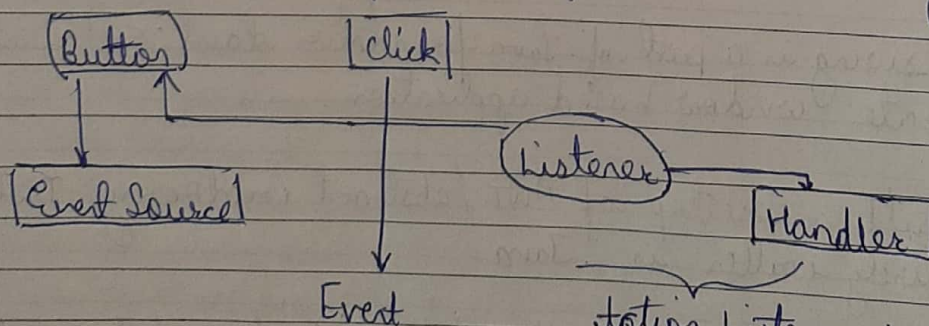 Button Click
Listener
Event Source
Handler
Event